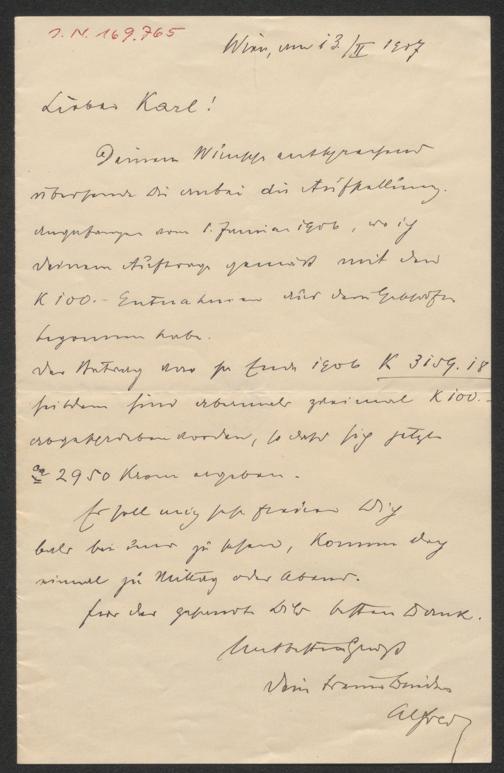 I. N. 169.765
Wien, am 13./II 1907
Lieber Karl!
Deinem Wunsche entsprechend
übersende Dir anbei die Aufstellung.
angefangen vom 1. Januar 1906, wo ich
Deinem Auftrage gemäß mit den
K 100.- Entnahmen aus dem
begonnen habe.
Der Betrag war per Ende 1906 K 3159.18
seitdem sind abermals zweimal K 100.-
abgeschrieben worden, so daß sich jetzt
ca 2950 Kronen ergeben.
Es soll mich sehr freuen Dich
bald bei uns zu sehen, komme doch
einmal zu Mittag oder Abend.
Für das gesandte Bild besten Dank.
Mit besten Gruß
Dein treuer Bruder
Alfred